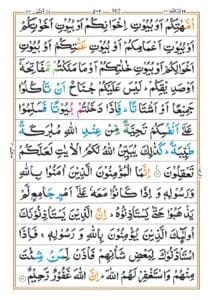 أُمَّهٰتِكُمْ اَوْ بُيُوْتِ اِخْوَانِكُمْ اَوْ بُيُوْتِ اَخَوٰتِكُمْ
اَوْ بُيُوْتِ اَعْمَامِكُمْ اَوْ بُيُوْتِ عَمّٰتِكُمْ اَوْ بُيُوْتِ
اَخْوَالِكُمْ اَوْ بُيُوْتِ خٰلٰتِكُمْ اَوْ مَا مَلَكْتُمْ مَّفَاتِحَهٗٓ
اَوْ صَدِيْقِكُمْ ؕ لَيْسَ عَلَيْكُمْ جُنَاحٌ اَنْ تَاْكُلُوْا
جَمِيْعًا اَوْ اَشْتَاتًا ؕ فَاِذَا دَخَلْتُمْ بُيُوْتًا فَسَلِّمُوْا
عَلٰٓى اَنْفُسِكُمْ تَحِيَّةً مِّنْ عِنْدِ اللّٰهِ مُبٰرَكَةً
طَيِّبَةً ؕ كَذٰلِكَ يُبَيِّنُ اللّٰهُ لَكُمُ الْاٰيٰتِ لَعَلَّكُمْ
تَعْقِلُوْنَ ۟ اِنَّمَا الْمُؤْمِنُوْنَ الَّذِيْنَ اٰمَنُوْا بِاللّٰهِ
وَرَسُوْلِهٖ وَ اِذَا كَانُوْا مَعَهٗ عَلٰٓى اَمْرٍ جَامِعٍ لَّمْ
يَذْهَبُوْا حَتّٰى يَسْتَاْذِنُوْهُ ؕ اِنَّ الَّذِيْنَ يَسْتَاْذِنُوْنَكَ
اُولٰٓئِكَ الَّذِيْنَ يُؤْمِنُوْنَ بِاللّٰهِ وَرَسُوْلِهٖ ۚ فَاِذَا
اسْتَاْذَنُوْكَ لِبَعْضِ شَاْنِهِمْ فَاْذَنْ لِّمَنْ شِئْتَ
مِنْهُمْ وَاسْتَغْفِرْ لَهُمُ اللّٰهَ ؕ اِنَّ اللّٰهَ غَفُوْرٌ رَّحِيْمٌ